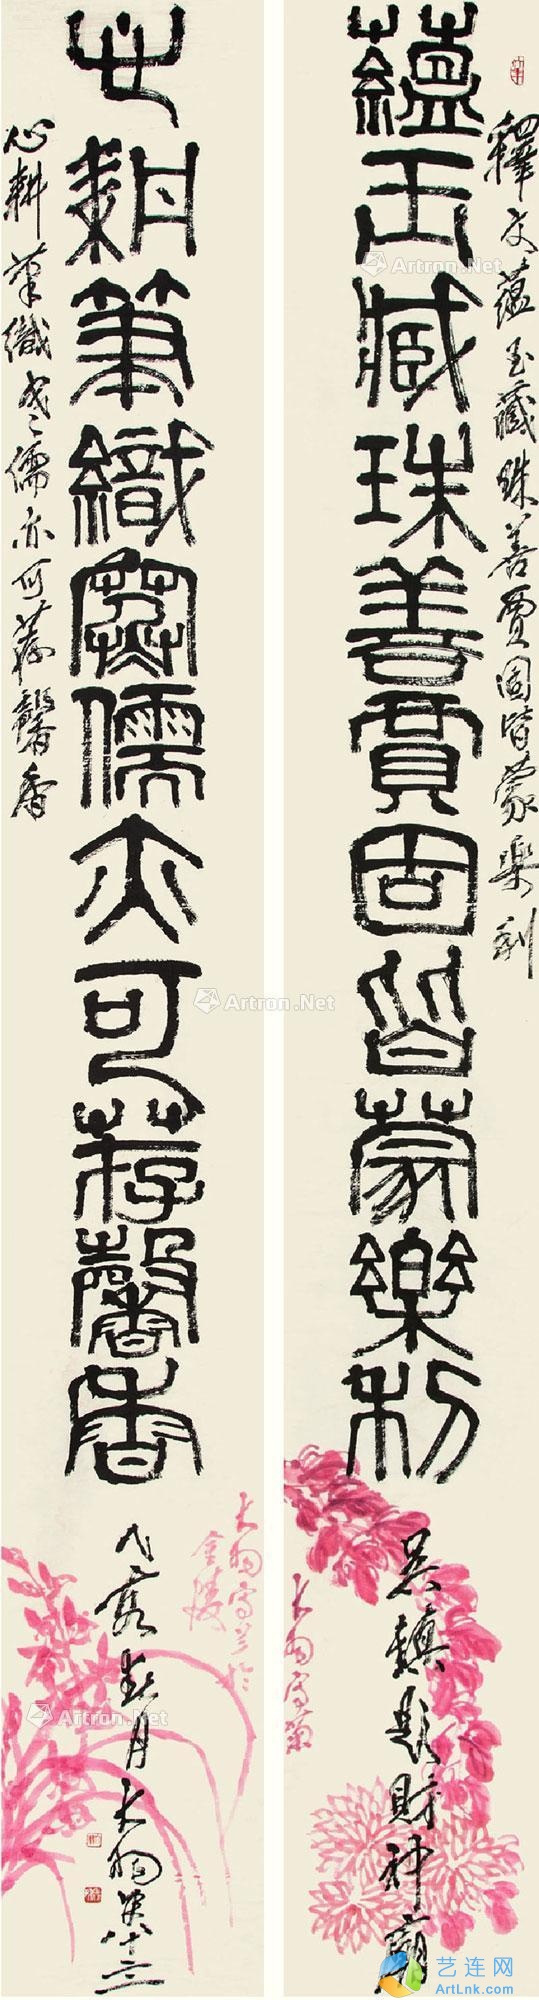 釋文蘊玉藏珠善賈固皆蒙樂利
蘊玉藏珠善賈固皆蒙樂利
吳鎮題財神廟
大羽寫菊
心耕筆織寒儒亦可荐馨香
心耕筆織寒儒亦可荐馨香
月大羽八十三
大羽寫蘭於
金陵
Artron.Net
Artron.Net
Artron.Net
Artron.Net
Artron.Net
Artron.Net
艺连网
ArtLnk.com